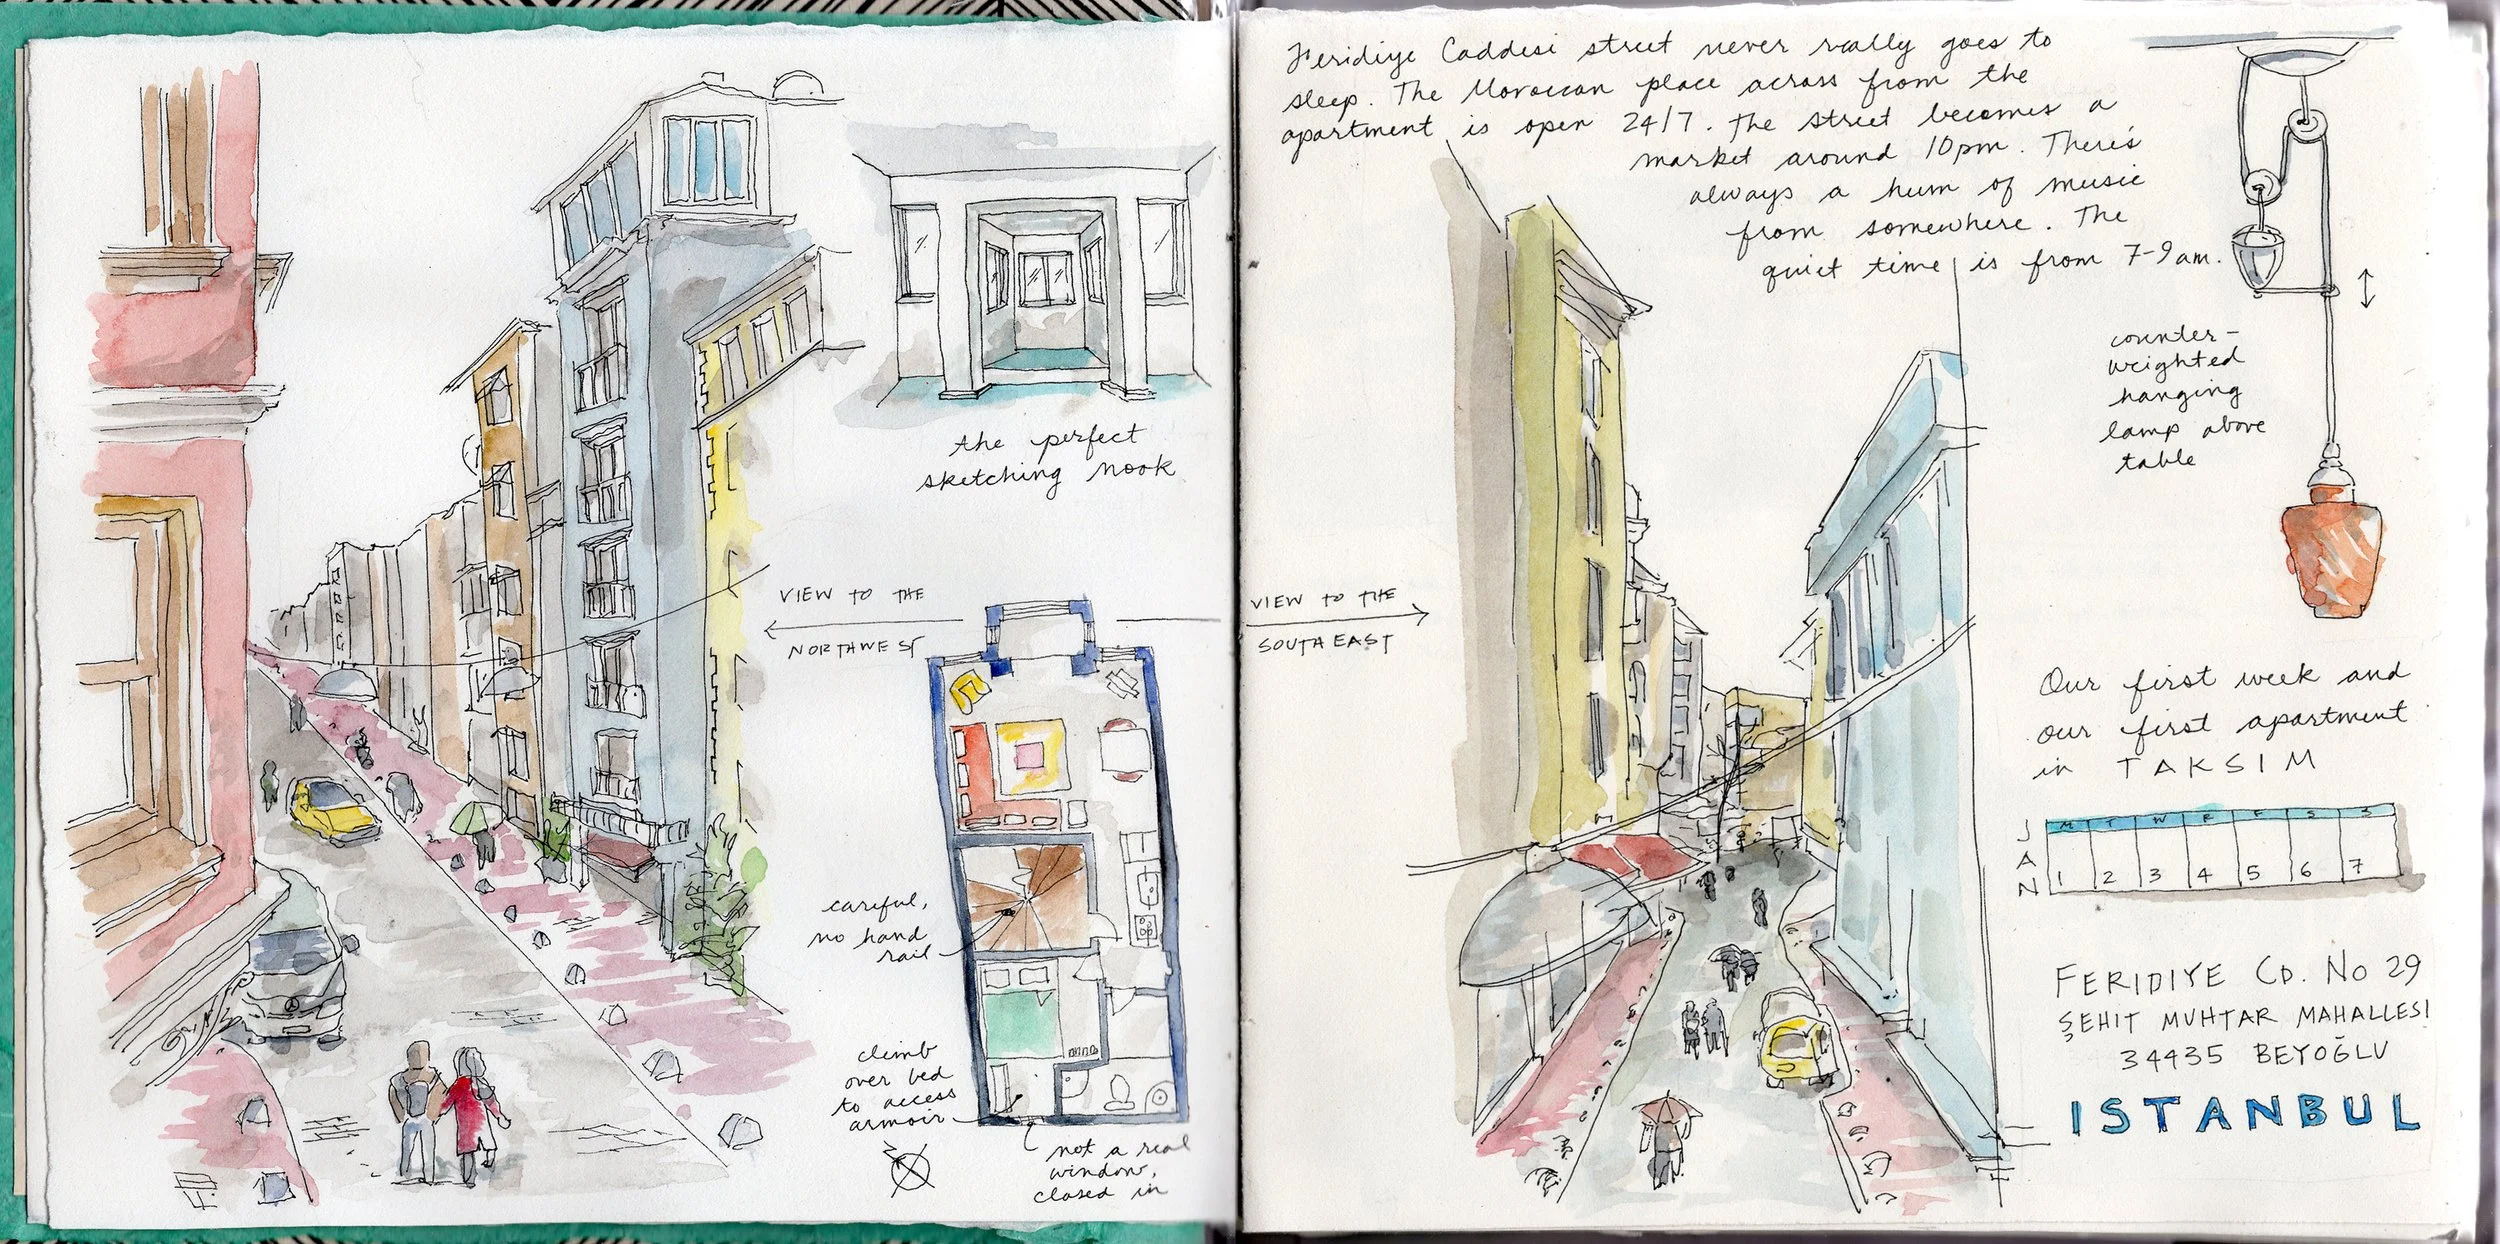 the perfect
sketching nook
VIEW TO THE
NORTHWEST
careful,
no hand
rail
climb
over bed
to access
armoir
N
not a real
window,
closed in
Feridiye Caddesi street never really goes to
sleep. The Moroccan place across from the
apartment is open 24/7. The street becomes a
market around 10pm. There's
always a hum of music
from somewhere. The
quiet time is from 7-9am.
counter-
weighted
hanging
lamp above
table
VIEW TO THE
SOUTHEAST
Our first week and
our first apartment
in TAKSIM
JAN
M T W R F S S
1 2 3 4 5 6 7
FERIDIYE CD. NO 29
ŞEHIT MUHTAR MAHALLESI
34435 BEYOĞLU
ISTANBUL